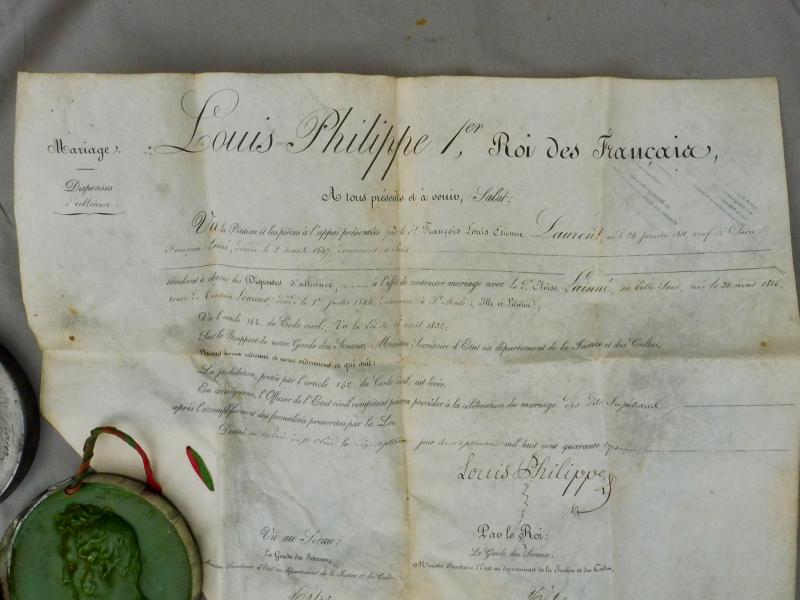 Mariage.
Dispenses
d'alliance.
Louis-Philippe 1er, Roi des Français,
A tous présents et à venir, Salut:
Vu la Pétition et les pièces à l'appui présentées par le Sr François Louis Etienne Laurent, né le 24 janvier 1811, veuf de Claire
Françoise Lainé, décédée le 2 mars 1847, demeurant à Paris
tendant à obtenir des Dispenses d'alliance, à l'effet de contracter mariage avec la De Eloïse Lainné, sa belle Sœur, née le 31 août 1816,
veuve de décédé le 1er juillet 1844, demeurant à St Malo (Ille et Vilaine);
Vu l'article 162 du Code civil; Vu la Loi du 16 avril 1832;
Sur le Rapport de notre Garde des Sceaux, Ministre Secrétaire d'Etat au département de la Justice et des Cultes,
Nous avons ordonné et nous ordonnons ce qui suit:
La prohibition portée par l'article 162 du Code civil, est levée.
En conséquence, l'Officier de l'Etat civil compétent pourra procéder à la célébration du mariage des dits Impétrants
après l'accomplissement des formalités prescrites par la Loi.
Donné au palais de St Cloud le jour de septembre mil huit cent quarante sept
Louis Philippe
Vu au Sceau:
Le Garde des Sceaux,
Ministre Secrétaire d'Etat au département de la Justice et des Cultes,
Par le Roi:
Le Garde des Sceaux,
Ministre Secrétaire d'Etat au département de la Justice et des Cultes,